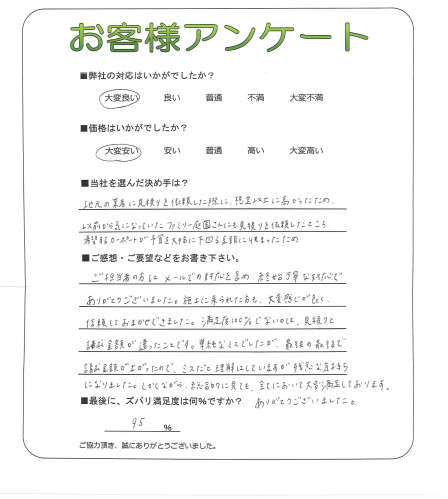 お客様アンケート
■弊社の対応はいかがでしたか？
大変良い 良い 普通 不満 大変不満
■価格はいかがでしたか？
大変安い 安い 普通 高い 大変高い
■当社を選んだ決め手は？
地元の業者に見積りを依頼した際に、想定以上に高かったため、
以前から気になっていたファミリー庭園さんにも見積りを依頼したところ
希望するカーポートが予算を大幅に下回る金額に収まったため
■ご感想・ご要望などをお書き下さい。
ご担当者の方はメールでの対応を含め、終始丁寧な対応で
ありがとうございました。施工に来られた方も、大変感じが良く、
信頼しておまかせできました。満足度100%でないのは、見積りと
請求金額が違ったことです。単純なミスでしたが、最後の最後で
請求金額が上がったので、ミスだと理解はしていますが残念な気持ち
になりました。しかしながら、総合的に見ても、全てにおいて大変満足しております。
■最後に、ズバリ満足度は何％ですか？ ありがとうございました。
95 ％
ご協力頂き、誠にありがとうございました。